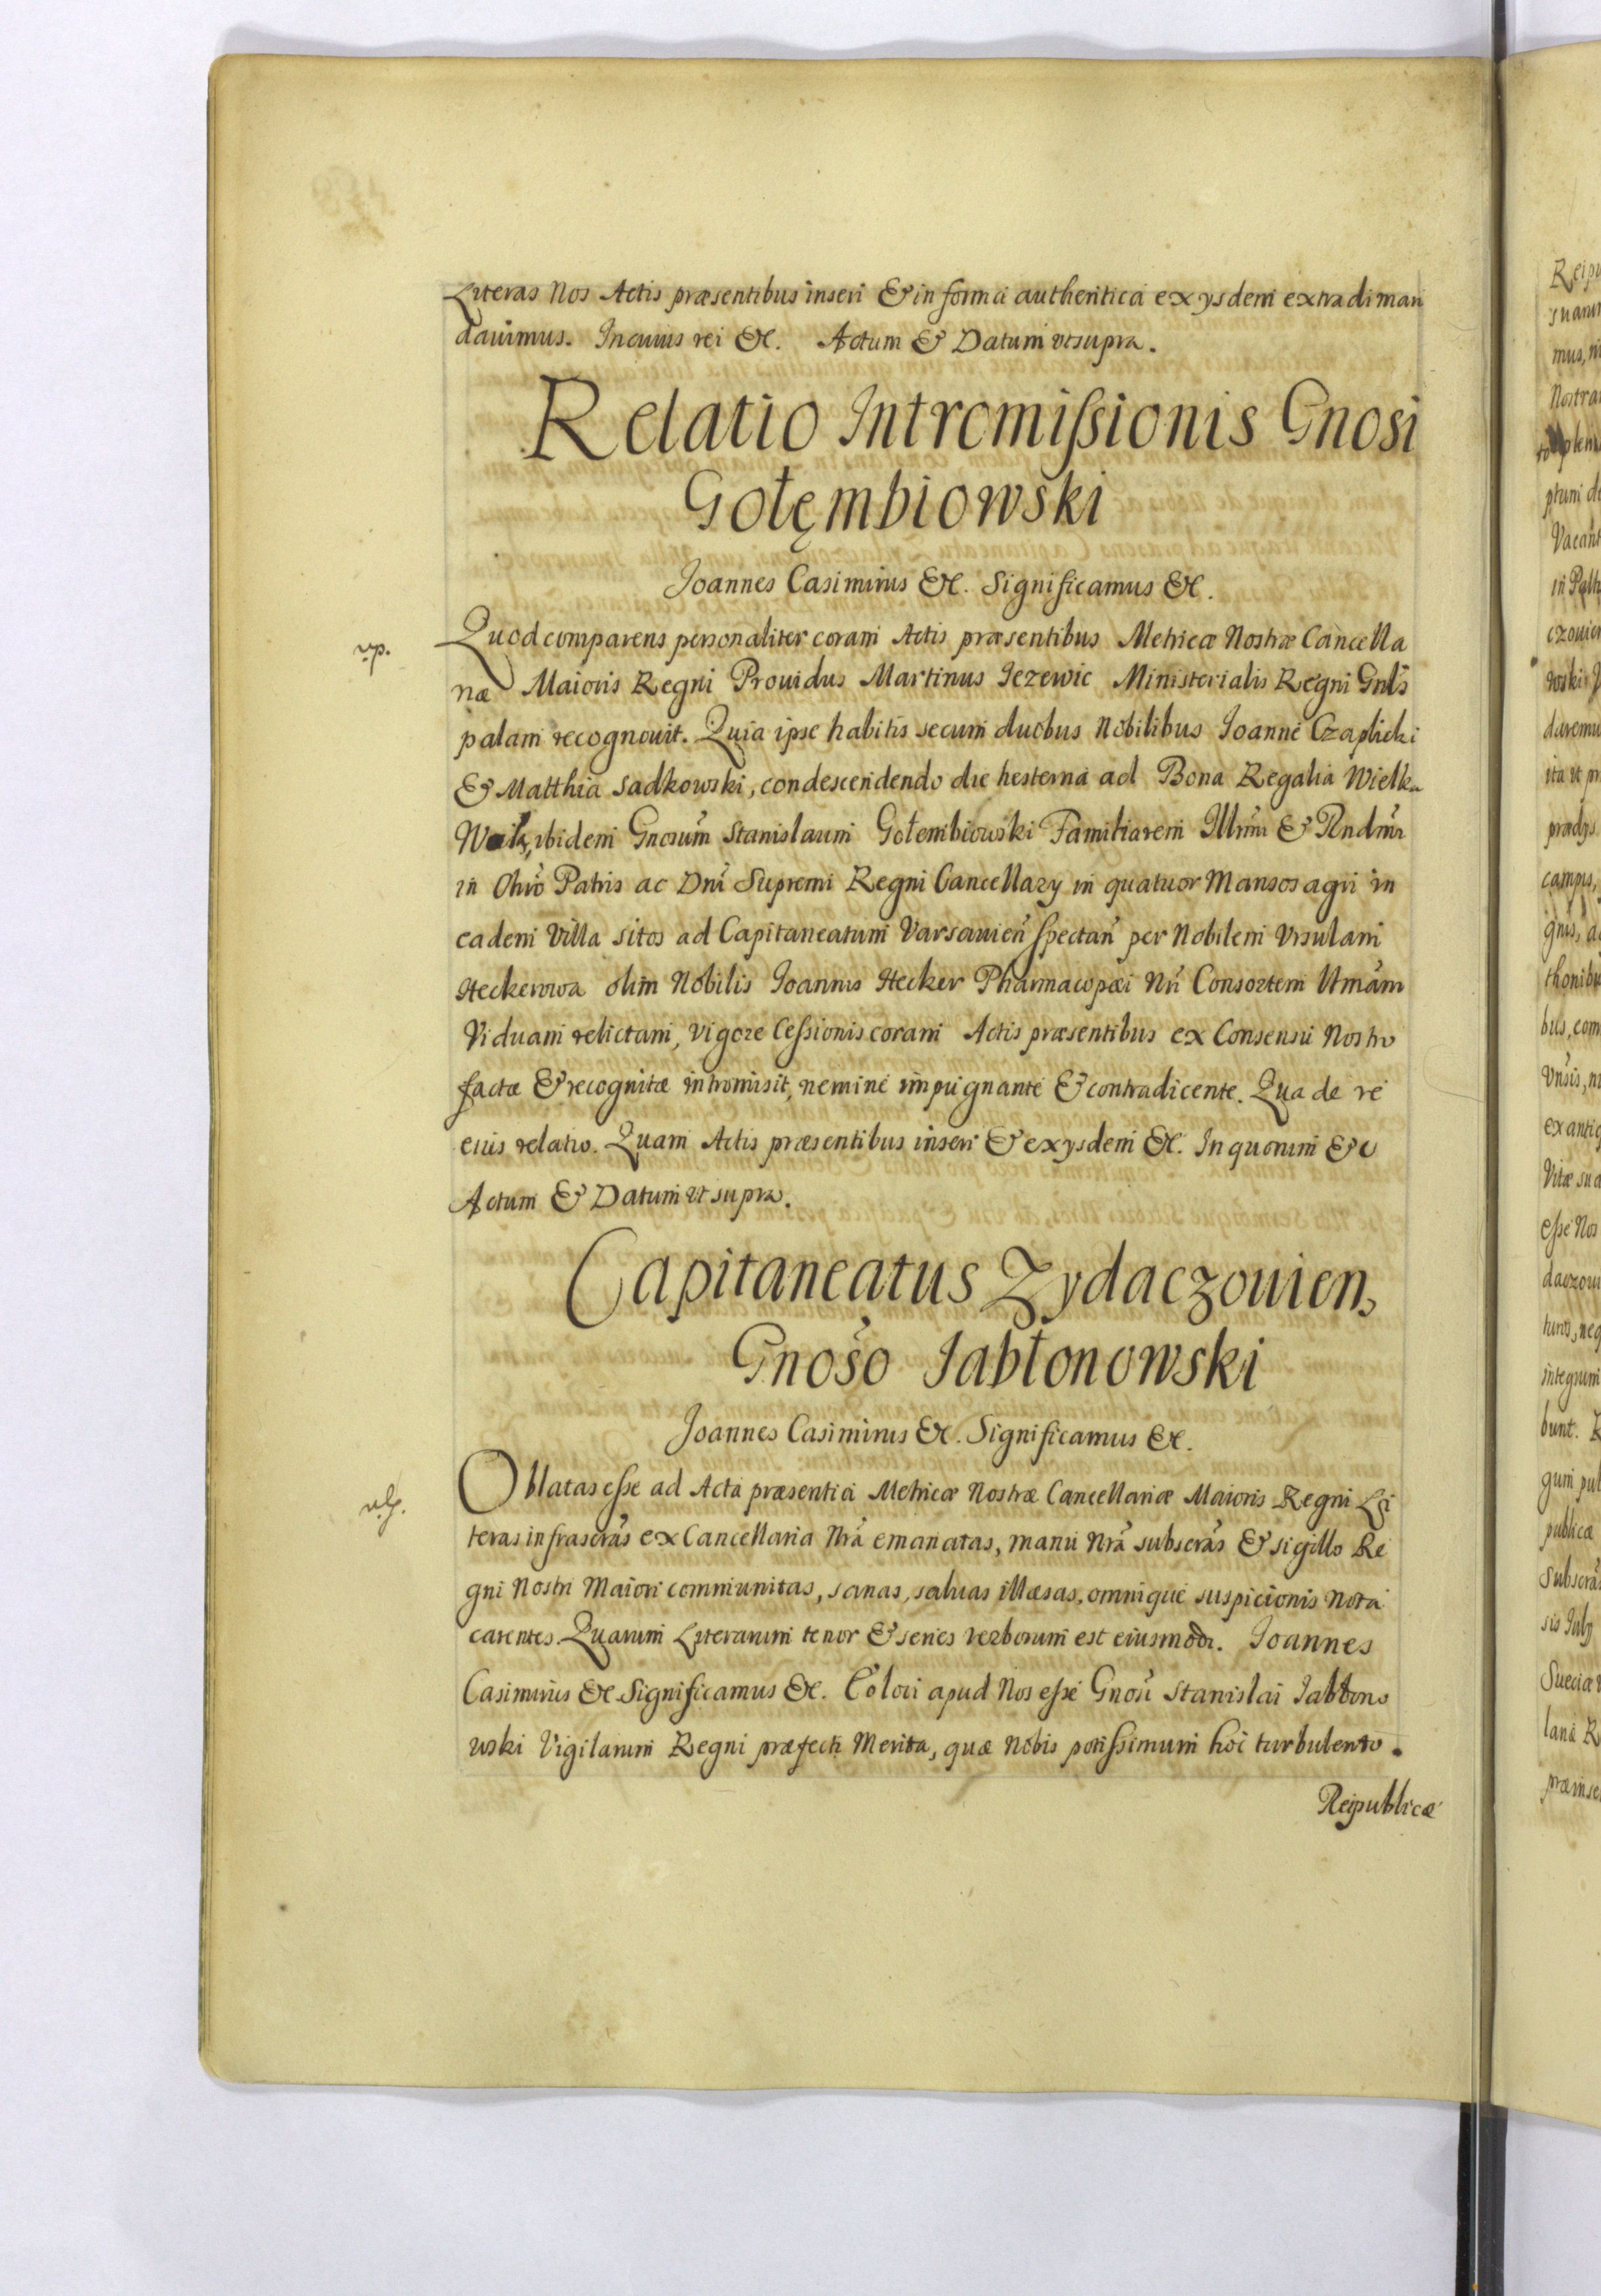 Literas Nos Actis præsentibus inseri & in forma authentica ex ysdem extradi man
dauimus. In cuius rei &c. Actum & Datum vt supra.
Relatio Intromißionis Gnosi
Gołęmbiowski
Joannes Casimirus &c. Significamus &c.
vp.
Quod comparens personaliter coram Actis præsentibus Metricæ Nostræ Cancella
riæ Maioris Regni Prouidus Martinus Jezewic Ministerialis Regni Gnlis
palam recognouit. Quia ipse habitis secum duobus Nobilibus Joanne Czaplicki
& Matthia Sadkowski, condescendendo die hesterna ad Bona Regalia Wielka
ibidem Gnosum Stanislaum Gołembiowski Familiarem Illrm & Rndmi
in Chro Patris ac Dni Supremi Regni Cancellary in quatuor Mansos agri in
eadem Villa sitos ad Capitaneatum Varsauien spectan per Nobilem Vrsulam
Heckerowa olim Nobilis Joannis Hecker Pharmacopæi Nri Consortem
Viduam relictam, vigore Ceßionis coram Actis præsentibus ex Consensu Nostro
factæ & recognitæ intromisit, nemine impugnante & contradicente. Qua de re
eius relatio. Quam Actis præsentibus inseri & ex ysdem &c. In quorum &c
Actum & Datum vt supra.
Capitaneatus Zydaczouien,
Gnoso Jabłonowski
Joannes Casimirus &c. Significamus &c.
Oblatas eße ad Acta præsentia Metricæ Nostræ Cancellariæ Maioris Regni Li
teras infrascras ex Cancellaria Nra emanatas, manu Nra subscras & sigillo Re
gni Nostri Maiori communitas, sanas, saluas illæsas, omnique suspicionis nota
carentes. Quarum Literarum tenor & series verborum est eiusmodi. Joannes
Casimirus &c. Significamus &c. Eo loci apud Nos eße Gnosi Stanislai Jabłono
wski Vigilarum Regni præfecti Merita, quæ Nobis potißimum hoc turbulento.
Reipublicæ